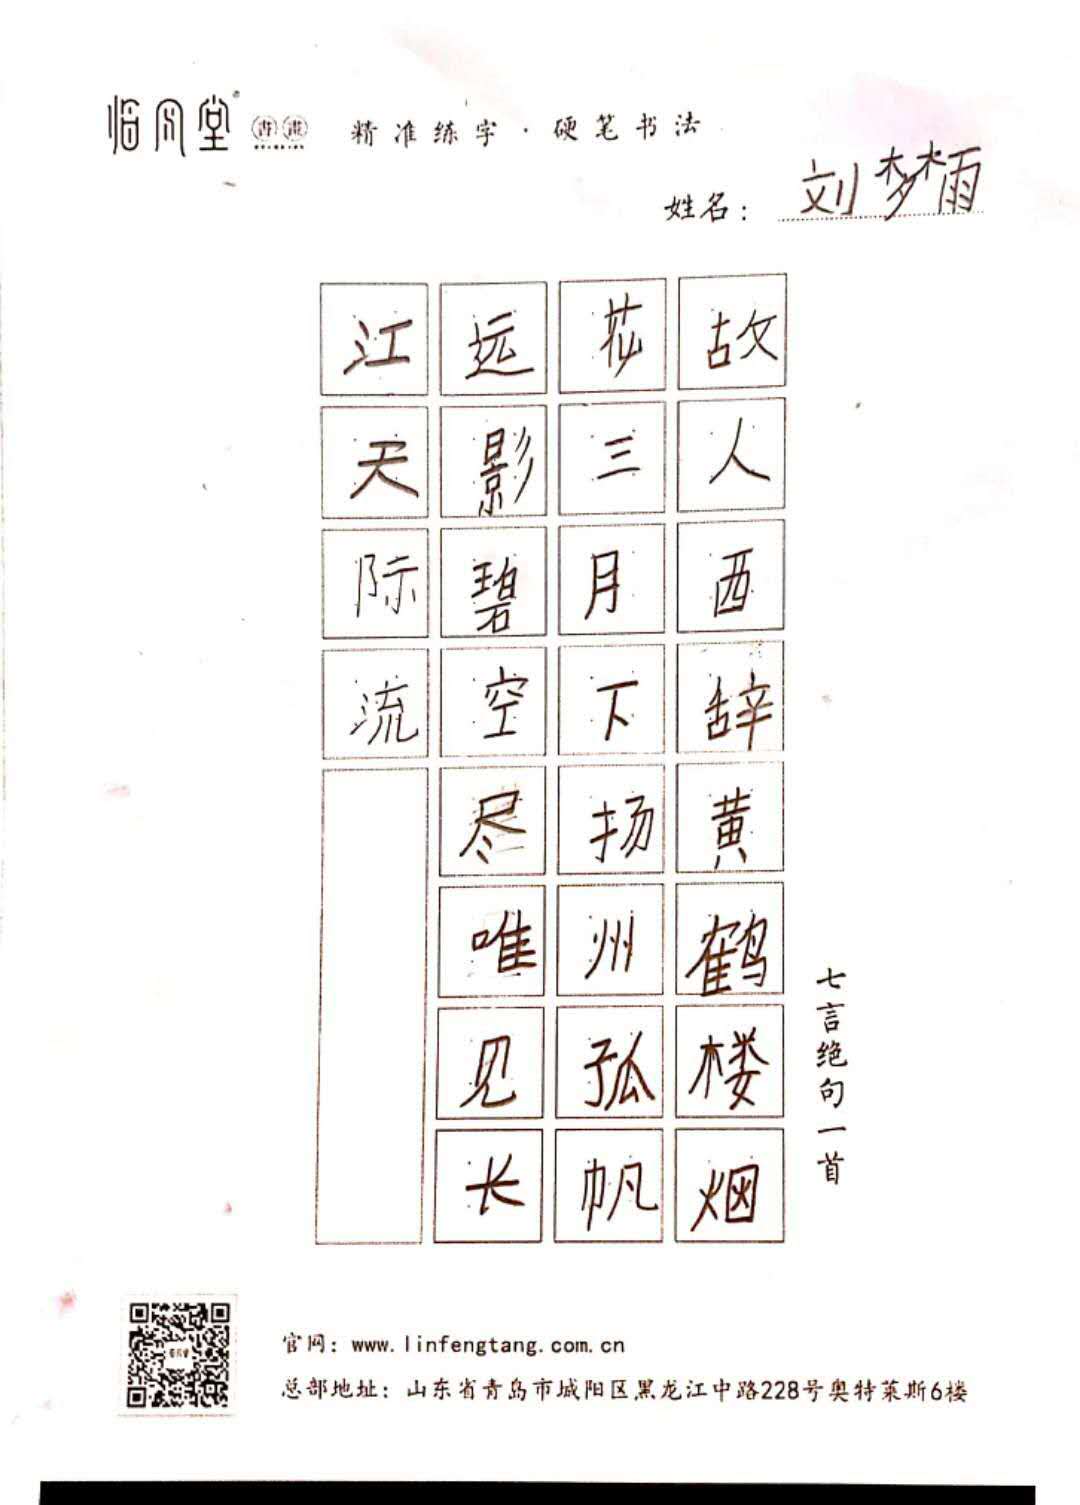 临风堂 書畫
精准练字·硬笔书法
姓名：刘梦雨
七言绝句一首
故人西辞黄鹤楼烟
花三月下扬州孤帆
远影碧空尽唯见长
江天际流
官网：www.linfengtang.com.cn
总部地址：山东省青岛市城阳区黑龙江中路228号奥特莱斯6楼